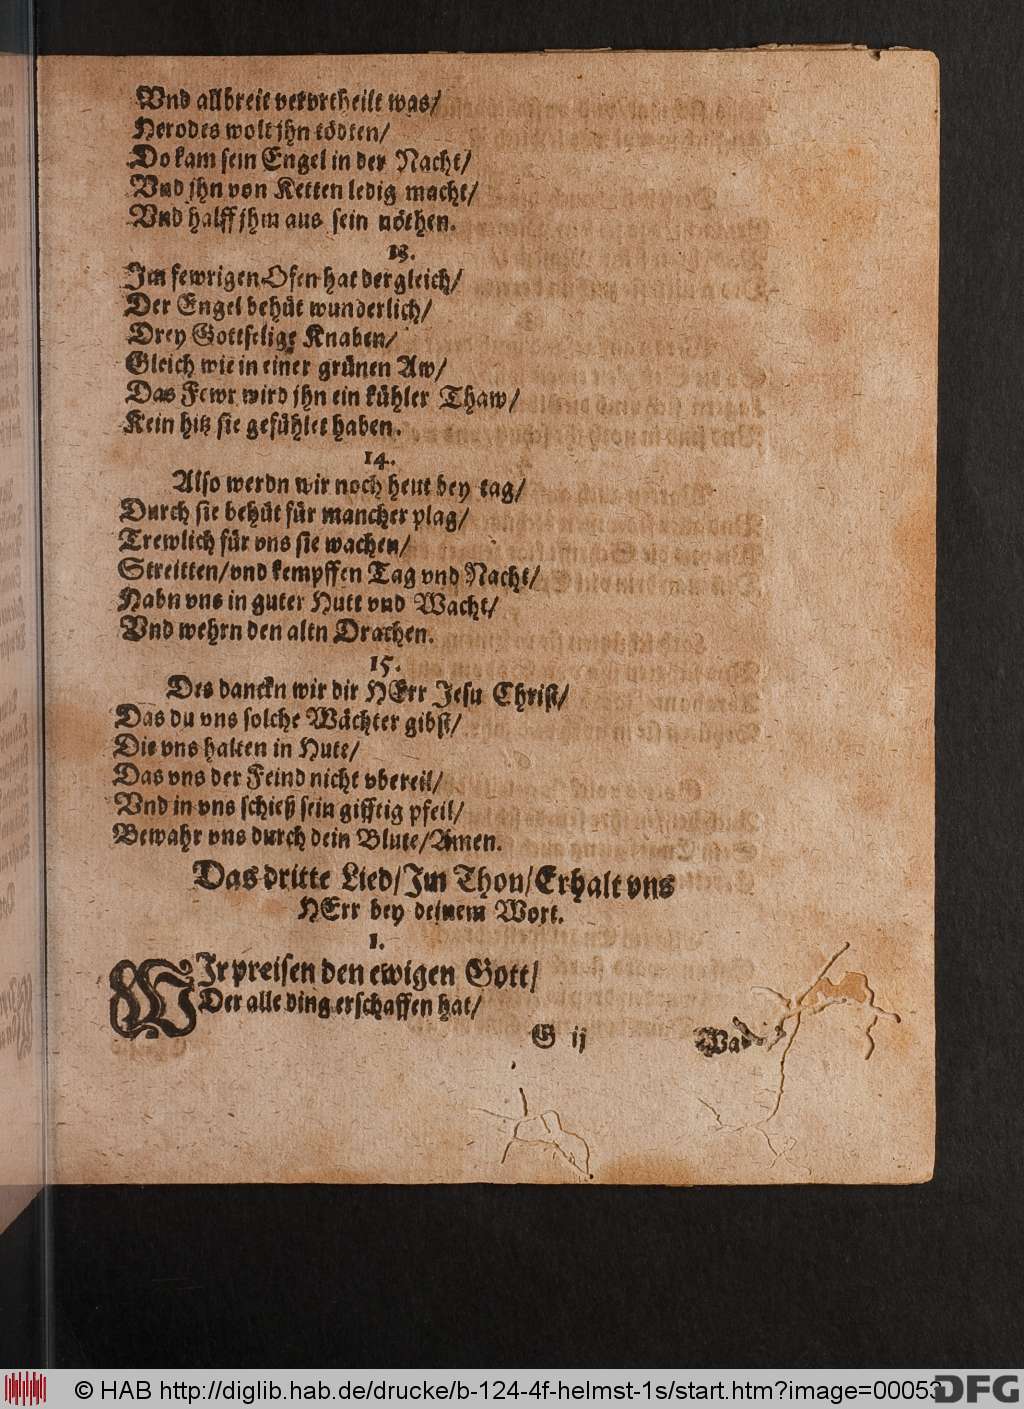 Vnd allbreit verurtheilt was/
Herodes wolt jhn tödten/
Do kam sein Engel in der Nacht/
Vnd jhn von Ketten ledig macht/
Vnd halff jhm aus sein nöthen.
13.
Im fewrigen Ofen hat dergleich/
Der Engel behüt wunderlich/
Drey Gottselige Knaben/
Gleich wie in einer grünen Aw/
Das Fewr wird jhn ein kühler Thaw/
Kein hitz sie gefühlet haben.
14.
Also werdn wir noch heut bey tag/
Durch sie behüt für mancher plag/
Trewlich für vns sie wachen/
Streitten/vnd kempffen Tag vnd Nacht/
Habn vns in guter Hutt vnd Wacht/
Vnd wehrn den altn Drachen.
15.
Des danckn wir dir HErr Jesu Christ/
Das du vns solche Wächter gibst/
Die vns halten in Hute/
Das vns der Feind nicht vbereil/
Vnd in vns schieß sein gifftig pfeil/
Bewahr vns durch dein Blute/Amen.
Das dritte Lied/Im Thon/Erhalt vns
HErr bey deinem Wort.
1.
WIr preisen den ewigen Gott/
Der alle ding erschaffen hat/
G ij
© HAB http://diglib.hab.de/drucke/b-124-4f-helmst-1s/start.htm?image=00053
DFG